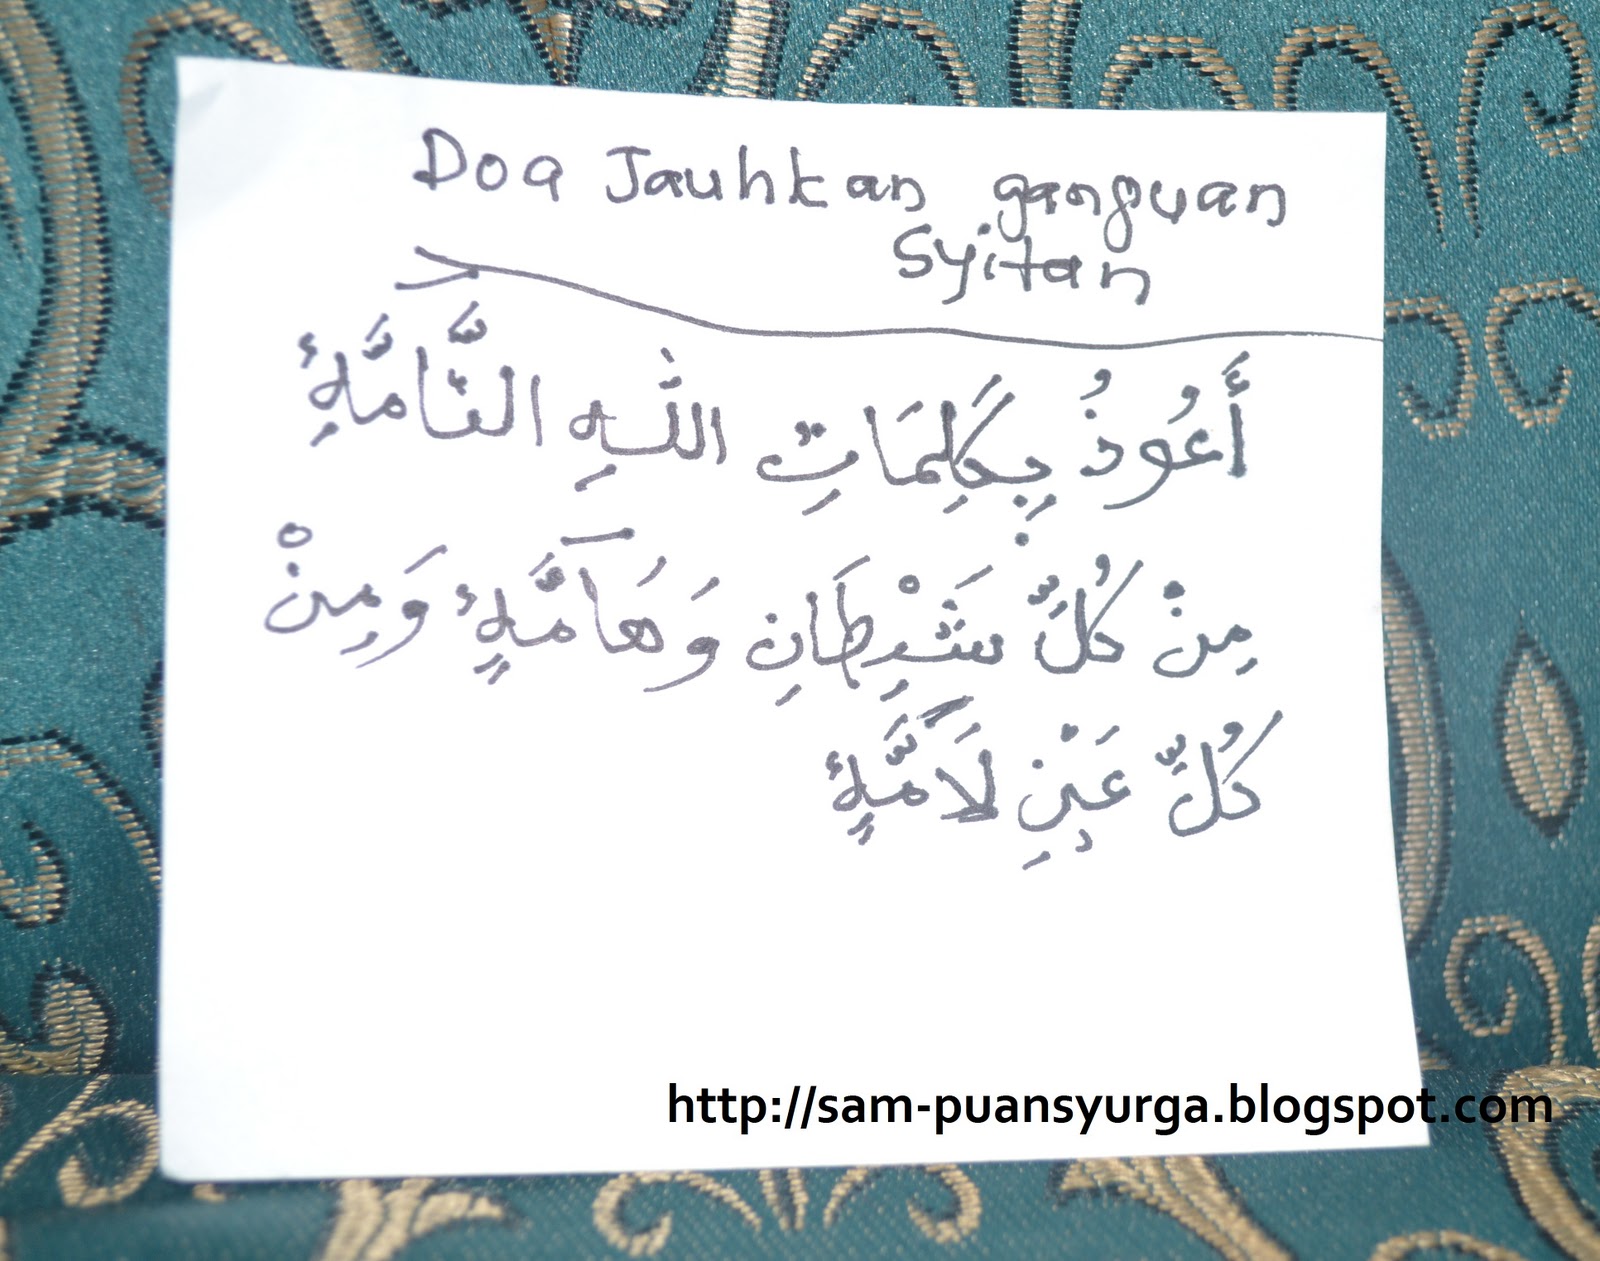 Doa Jauhkan ganguan
Syitan
أَعُوذُ بِكَلِمَاتِ اللهِ التَّامَّةِ
مِنْ كُلِّ شَيْطَانٍ وَهَآمَّةٍ وَمِنْ
كُلِّ عَيْنٍ لَآمَّةٍ
http://sam-puansyurga.blogspot.com